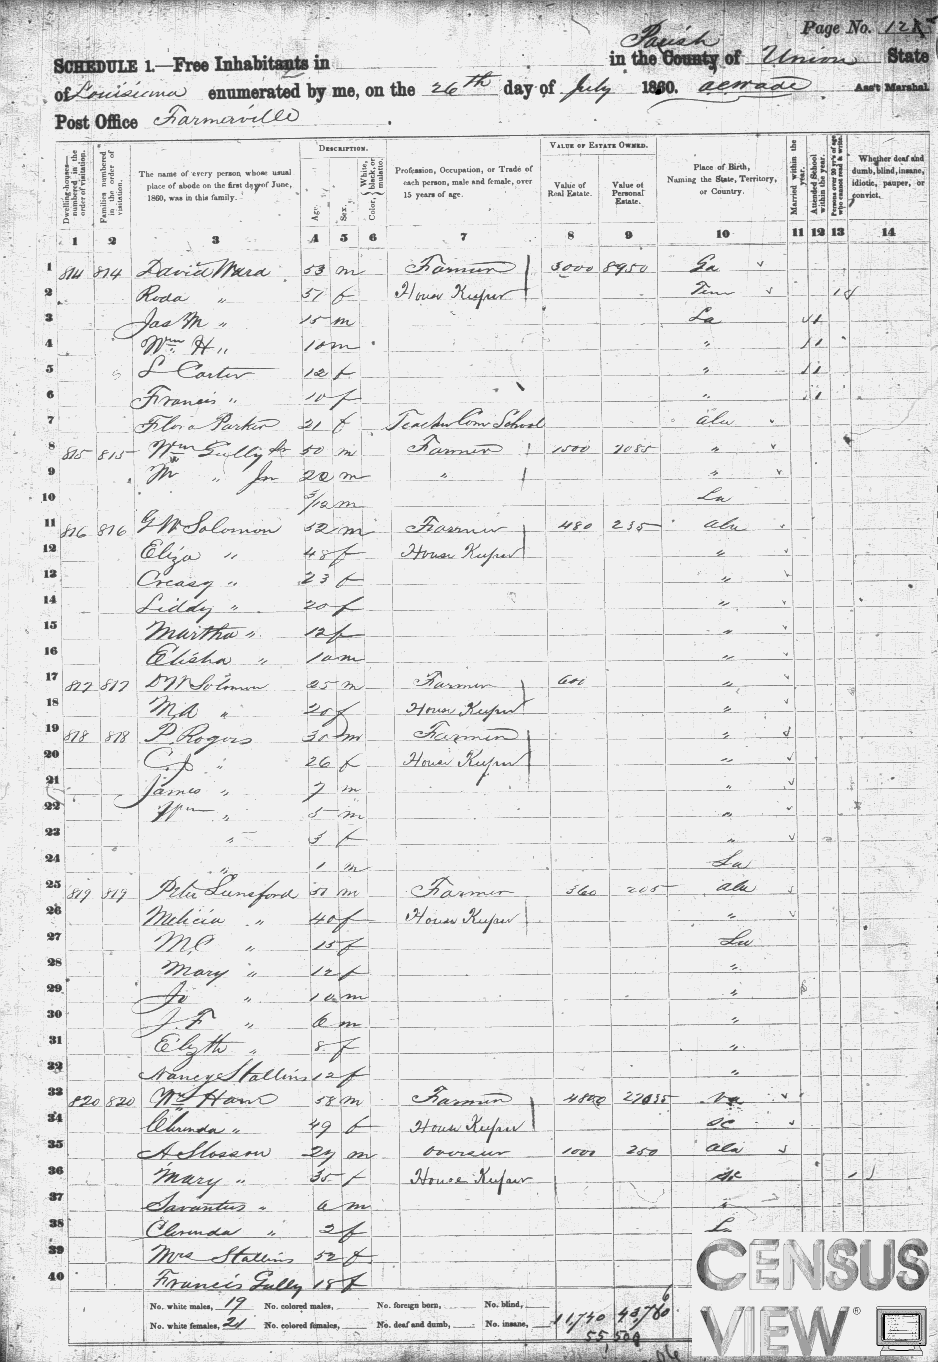 Page No. 12
SCHEDULE 1.—Free Inhabitants in Parish in the County of Union State
of Louisiana enumerated by me, on the 26th day of July 1860. Ass't Marshal
Post Office Farmerville
DESCRIPTION. VALUE OF ESTATE OWNED.
Dwelling-houses—numbered in the order of visitation.
Families numbered in the order of visitation.
The name of every person whose usual place of abode on the first day of June, 1860, was in this family.
Age. Sex. Color, White, black, or mulatto.
Profession, Occupation, or Trade of each person, male and female, over 15 years of age.
Value of Real Estate. Value of Personal Estate.
Place of Birth, Naming the State, Territory, or Country.
Married within the year. Attended School within the year. Persons over 20 y'rs of age who cannot read & write.
Whether deaf and dumb, blind, insane, idiotic, pauper, or convict.
1 2 3 4 5 6 7 8 9 10 11 12 13 14
1 814 814 David Ward 53 m Farmer 3000 8950 Ga
2 Roda " 51 f House Keeper Tenn 1
3 Jas M " 15 m La 1
4 Wm H " 10 m " 1 1
5 L Carter 12 f " 1 1
6 Francis " 10 f " 1
7 Flora Parker 21 f Teacher Com School Ala
8 815 815 Wm Gully Sr 50 m Farmer 1500 7085 "
9 Wm " Jn 20 m " "
10 3/12 m La
11 816 816 G W Solomon 52 m Farmer 480 235 Ala
12 Eliza " 48 f House Keeper "
13 Creasy " 23 f "
14 Liddy " 20 f "
15 Martha " 12 f "
16 Elisha " 10 m "
17 817 817 D W Solomon 25 m Farmer 600 "
18 M A " 20 f House Keeper "
19 818 818 P. Rogers 30 m Farmer "
20 C. J. " 26 f House Keeper "
21 James " 7 m "
22 Wm " 5 m "
23 " 3 f "
24 " 1 m La
25 819 819 Pete Lunsford 51 m Farmer 360 205 Ala
26 Melicia " 40 f House Keeper "
27 M.C " 15 f La
28 Mary " 12 f "
29 Jo " 10 m "
30 J. F " 6 m "
31 Elizth " 8 f "
32 Nancy Stallins 12 f "
33 820 820 Wm Ham 58 m Farmer 4800 Va
34 Clerinda " 49 f House Keeper SC
35 A Slosson 29 m Overseer 1000 250 Ala
36 Mary " 35 f House Keeper 1
37 Savantus " 6 m "
38 Clerinda " 2 f La
39 Mrs Stallins 52 f
40 Francis Gully 18 f
No. white males, 19 No. colored males, No. foreign born, No. blind, 11,740
No. white females, 21 No. colored females, No. deaf and dumb, No. insane,
55,500
CENSUS
VIEW®